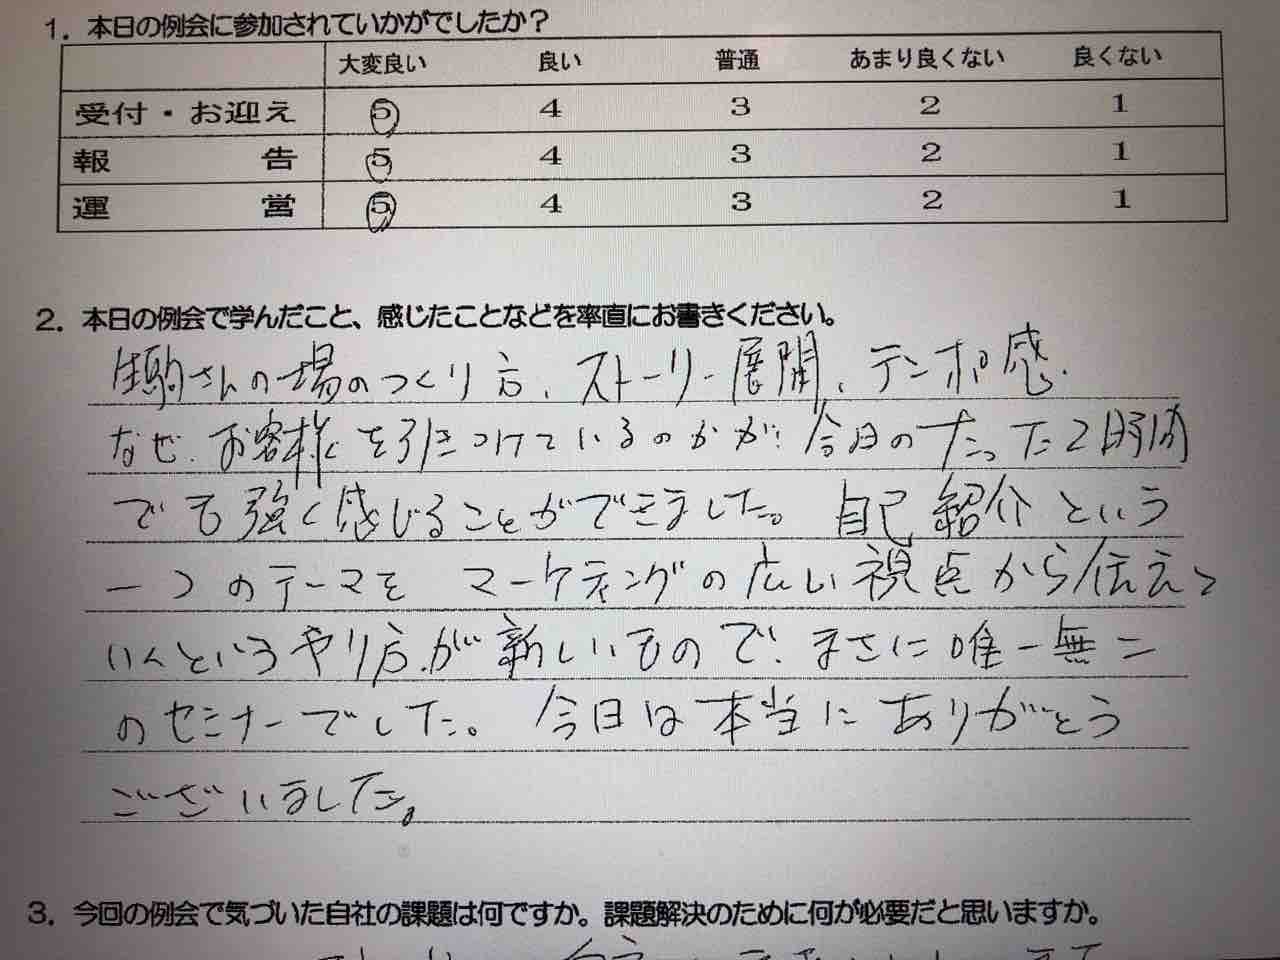 1. 本日の例会に参加されていかがでしたか？
大変良い 良い 普通 あまり良くない 良くない
受付・お迎え 5 4 3 2 1
報告 5 4 3 2 1
運営 5 4 3 2 1
2. 本日の例会で学んだこと、感じたことなどを率直にお書きください。
生駒さんの場のつくり方、ストーリー展開、テンポ感、
なぜ、お客様を引きつけているのかが、今日のたった2時間
でも強く感じることができました。自己紹介という
一つのテーマを マーケティングの広い視点から伝えて
いくというやり方が新しいもので、まさに唯一無二
のセミナーでした。今日は本当にありがとう
ございました。
3. 今回の例会で気づいた自社の課題は何ですか。課題解決のために何が必要だと思いますか。